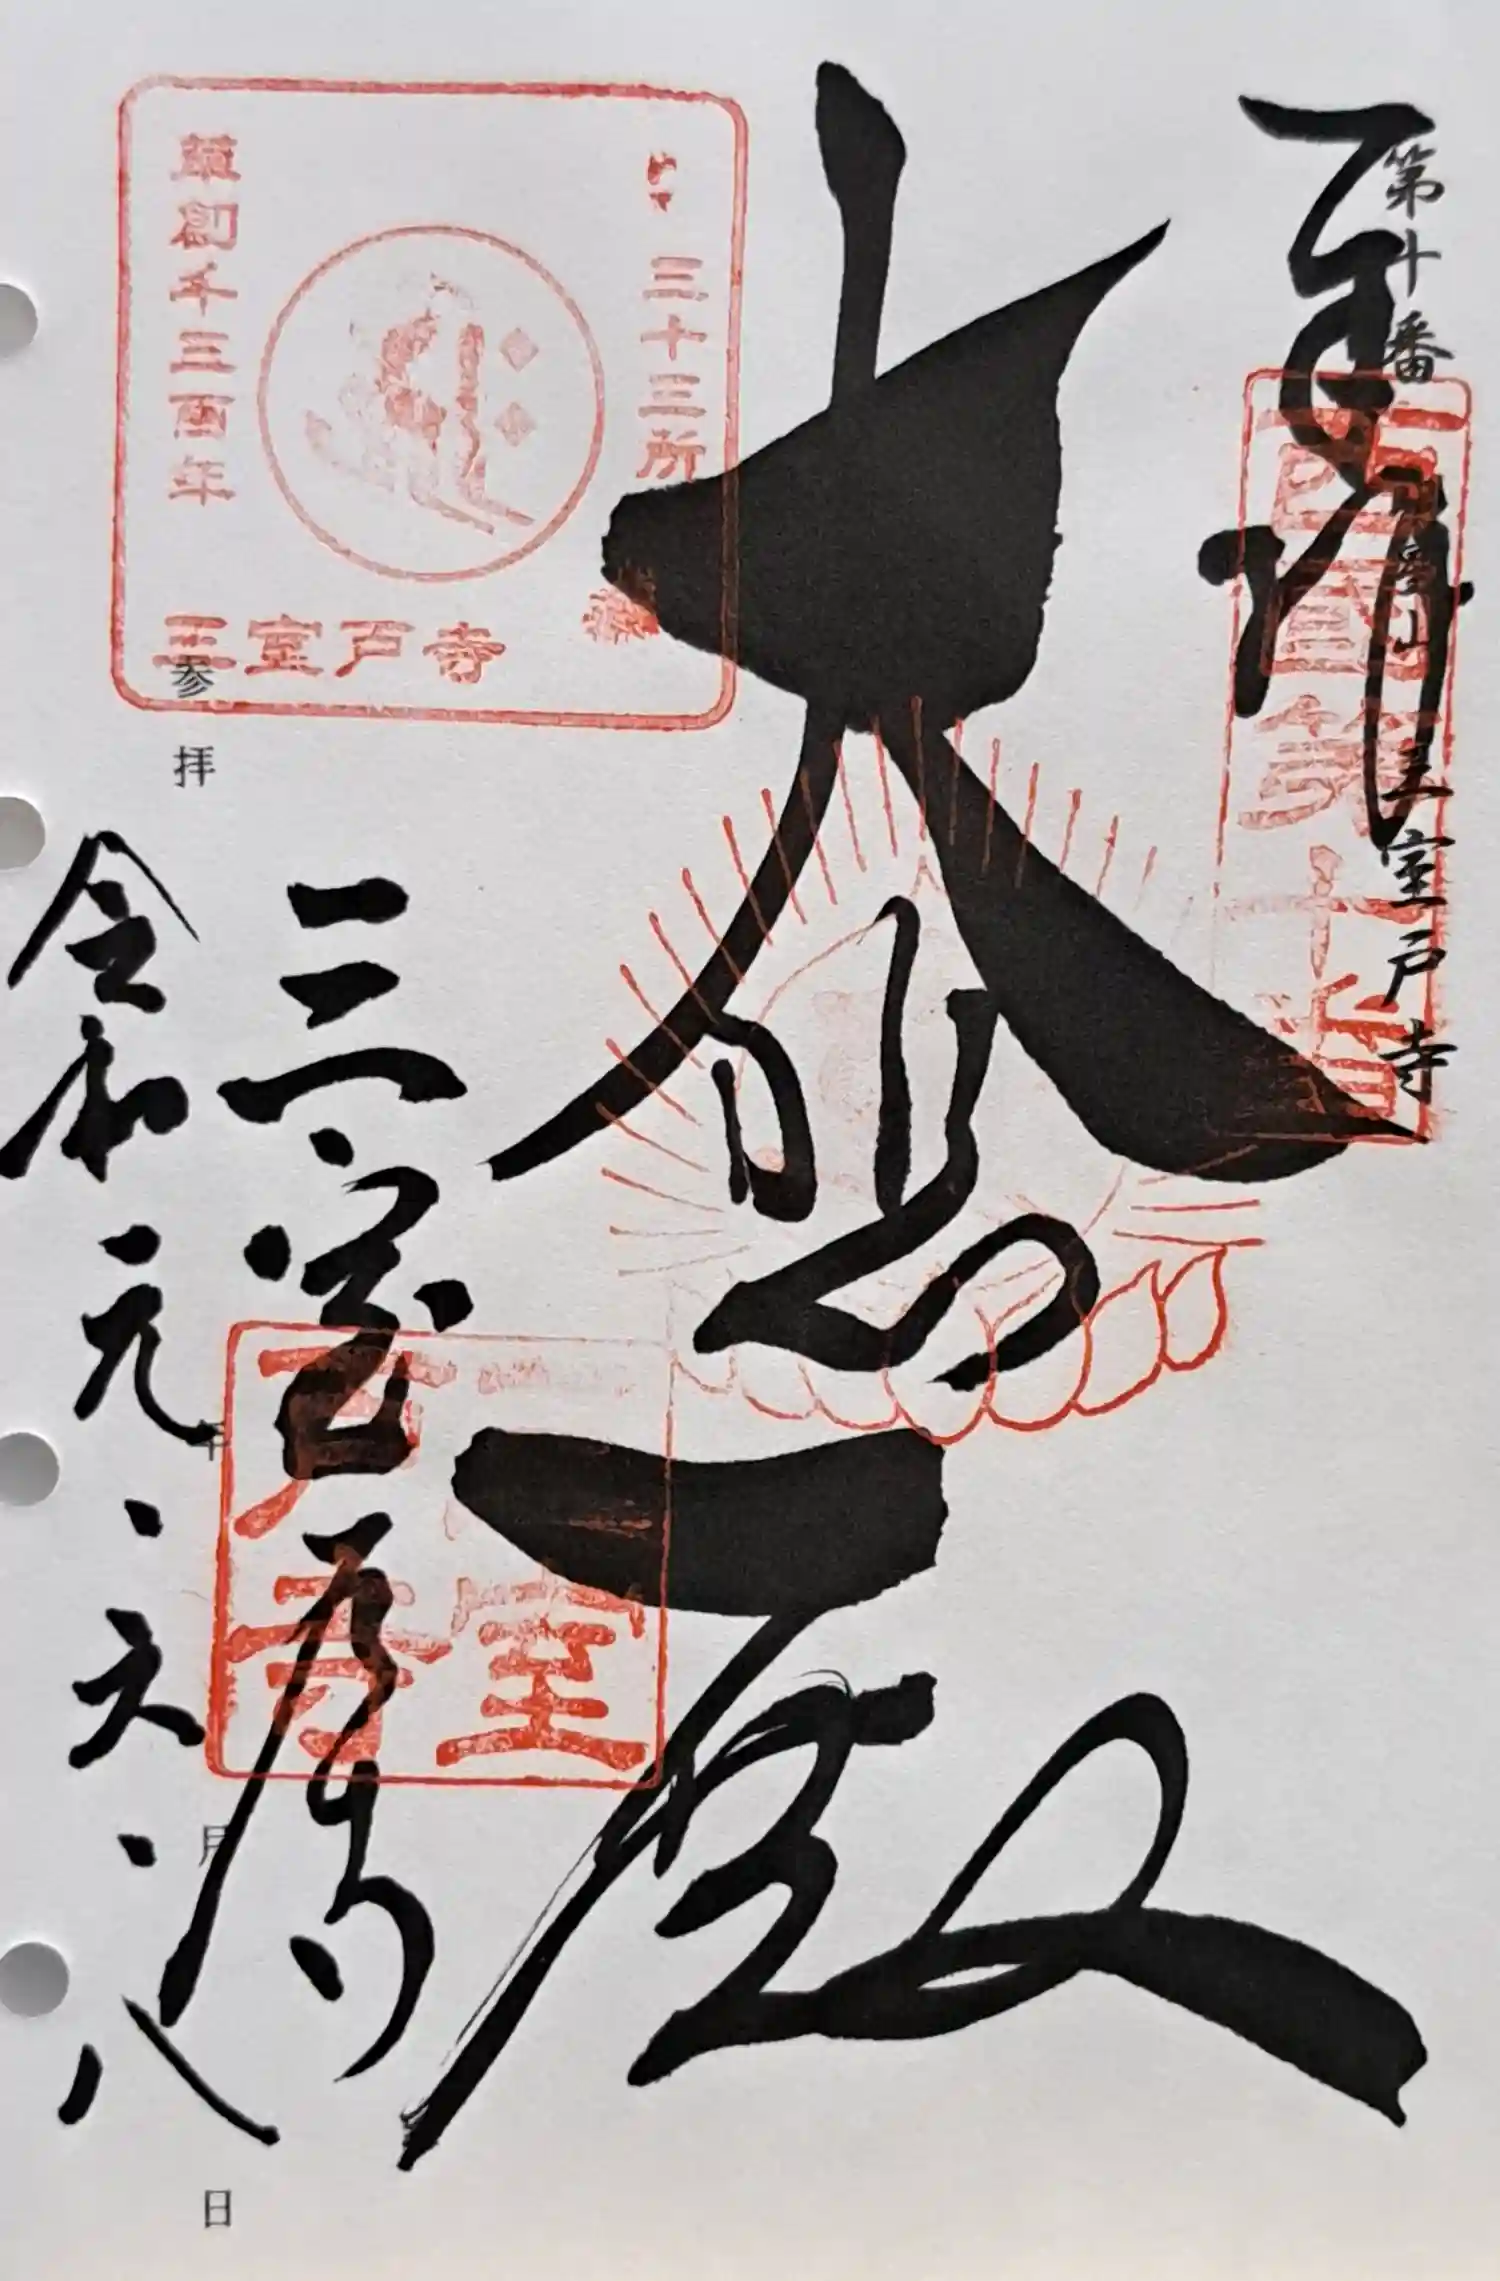 奉拝
第十番
明星山
三室戸寺
西国第十番
大悲殿
三十三所
草創千三百年
三室戸寺
三室戸寺
三室戸寺
参拝
年
月
日
令和元、六、八